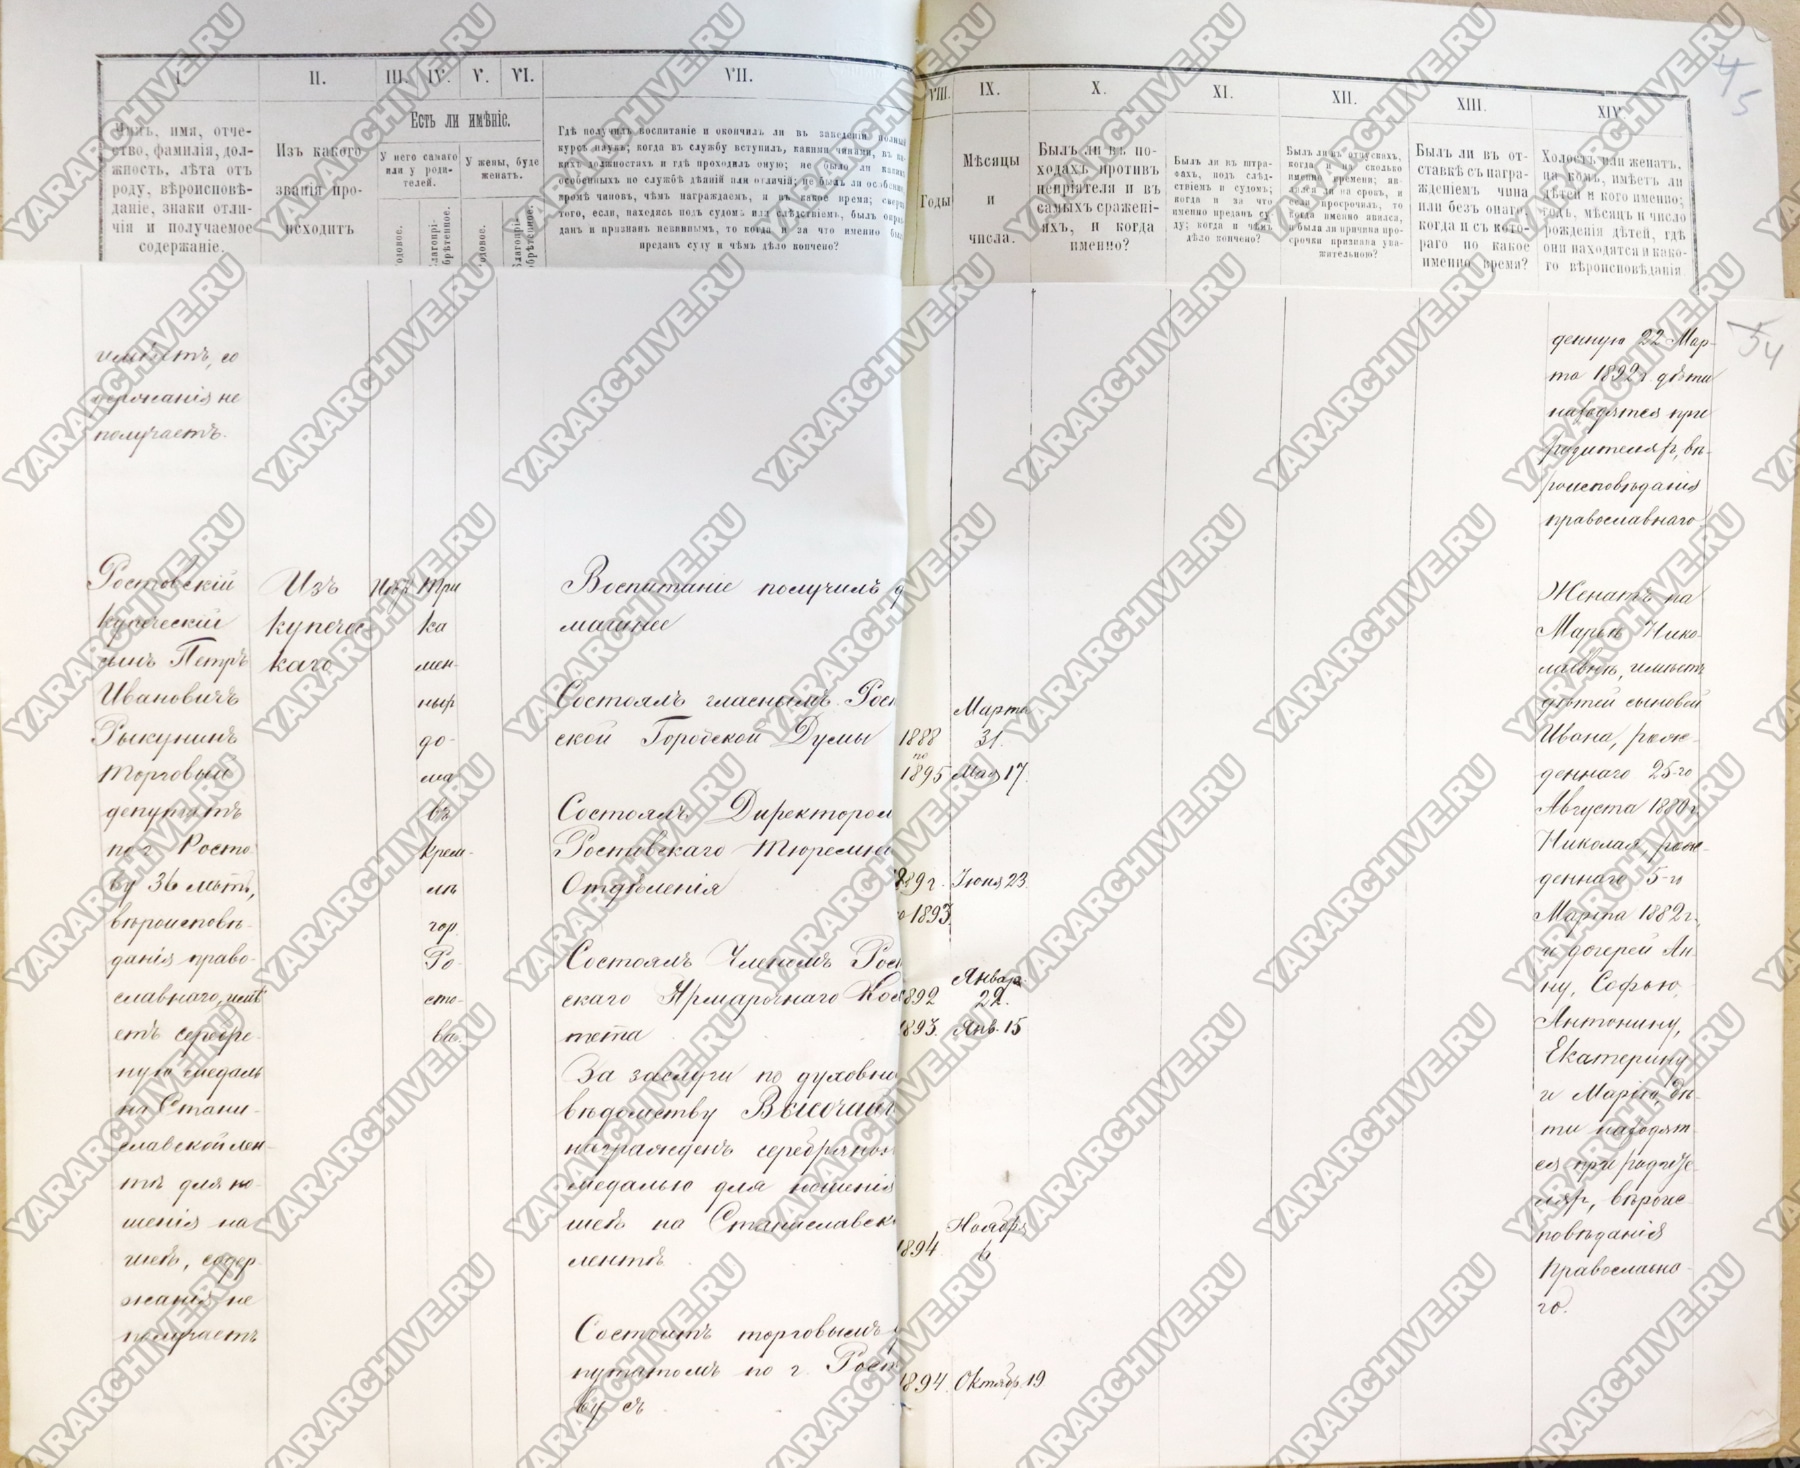 I.
II.
III.
IV.
V.
VI.
VII.
VIII.
IX.
X.
XI.
XII.
XIII.
XIV.
45
Чинъ, имя, отче-
ство, фамилія, дол-
жность, лѣта отъ
роду, вѣроисповѣ-
даніе, знаки отли-
чія и получаемое
содержаніе.
Изъ какого
званія про-
исходитъ
Есть ли имѣніе.
У него самаго
или у роди-
телей.
У жены, буде
женатъ.
Родовое.
Благопрі-
обрѣтенное.
Родовое.
Благопрі-
обрѣтенное.
Гдѣ получилъ воспитаніе и окончилъ ли въ заведеніи полный
курсъ наукъ; когда въ службу вступилъ, какими чинами, въ ка-
кихъ должностяхъ и гдѣ проходилъ оную; не было ли какихъ
особенныхъ по службѣ дѣяній или отличій; не былъ ли особенно,
кромѣ чиновъ, чѣмъ награждаемъ, и въ какое время; сверхъ
того, если, находясь подъ судомъ или слѣдствіемъ, былъ оправ-
данъ и признанъ невиннымъ, то когда и за что именно былъ
преданъ суду и чѣмъ дѣло кончено?
Годы
Мѣсяцы
и
числа.
Былъ ли въ по-
ходахъ противъ
непріятеля и въ
самыхъ сражені-
яхъ, и когда
именно?
Былъ ли въ штра-
фахъ, подъ слѣд-
ствіемъ и судомъ;
когда и за что
именно преданъ су-
ду; когда и чѣмъ
дѣло кончено?
Былъ ли въ отпускахъ,
когда и на сколько
именно времени; яв-
лялся ли на срокъ, и
если просрочилъ, то
когда именно явился,
и была ли причина про-
срочки признана ува-
жительною?
Былъ ли въ от-
ставкѣ съ награ-
жденіемъ чина
или безъ онаго;
когда и съ кото-
раго по какое
именно время?
Холостъ или женатъ,
на комъ, имѣетъ ли
дѣтей и кого именно;
годъ, мѣсяцъ и число
рожденія дѣтей, гдѣ
они находятся и како-
го вѣроисповѣданія
54
имѣетъ, со
держанія не
получаетъ.
денную 22 Мар-
та 1892 г. дѣти
находятся при
родителяхъ, вѣ-
роисповѣданія
православнаго
Ростовскій
купеческій
сынъ Петръ
Ивановичъ
Рыкунинъ
торговый
депутатъ
по г. Росто-
ву 36 лѣтъ,
вѣроисповѣ-
данія право-
славнаго, имѣ
етъ серебря-
ную медаль
на Стани-
славской лен-
тѣ для но-
шенія на
шеѣ, содер
жанія не
получаетъ
Изъ
купечес
каго
Нѣтъ
три
ка
мен-
ныхъ
до-
ма
въ
крем-
лѣ
гор.
Ро-
сто-
ва.
Воспитаніе получилъ д
машнее
Состоялъ гласнымъ Рост
ской Городской Думы
1888
по
1895
Марта
31.
Мая 17.
Состоялъ Директором
Ростовскаго Тюремна
Отдѣленія
889 г.
по 1893
Іюня 23.
Состоялъ Членомъ Рост
скаго Ярмарочнаго Ком
тета
1892
1893.
Январ.
22.
Янв. 15
За заслуги по духовно
вѣдомству Высочайш
награжденъ серебряно
медалью для ношенія
шеѣ на Станиславско
лентѣ
1894.
Ноября
6
Состоитъ торговымъ д
путатомъ по г. Рост
ву съ
1894.
Октября 19
Женатъ на
Марьѣ Нико-
лаевнѣ, имѣетъ
дѣтей сыновей
Ивана, рож-
деннаго 25-го
Августа 1880 г.
Николая, рож-
деннаго 5-го
Марта 1882 г.
и дочерей Ан-
ну, Софью,
Антонину,
Екатерину
и Марію, дѣ-
ти находят-
ся при родите-
ляхъ, вѣроис
повѣданія
Православна-
го.
YARARCHIVE.RU